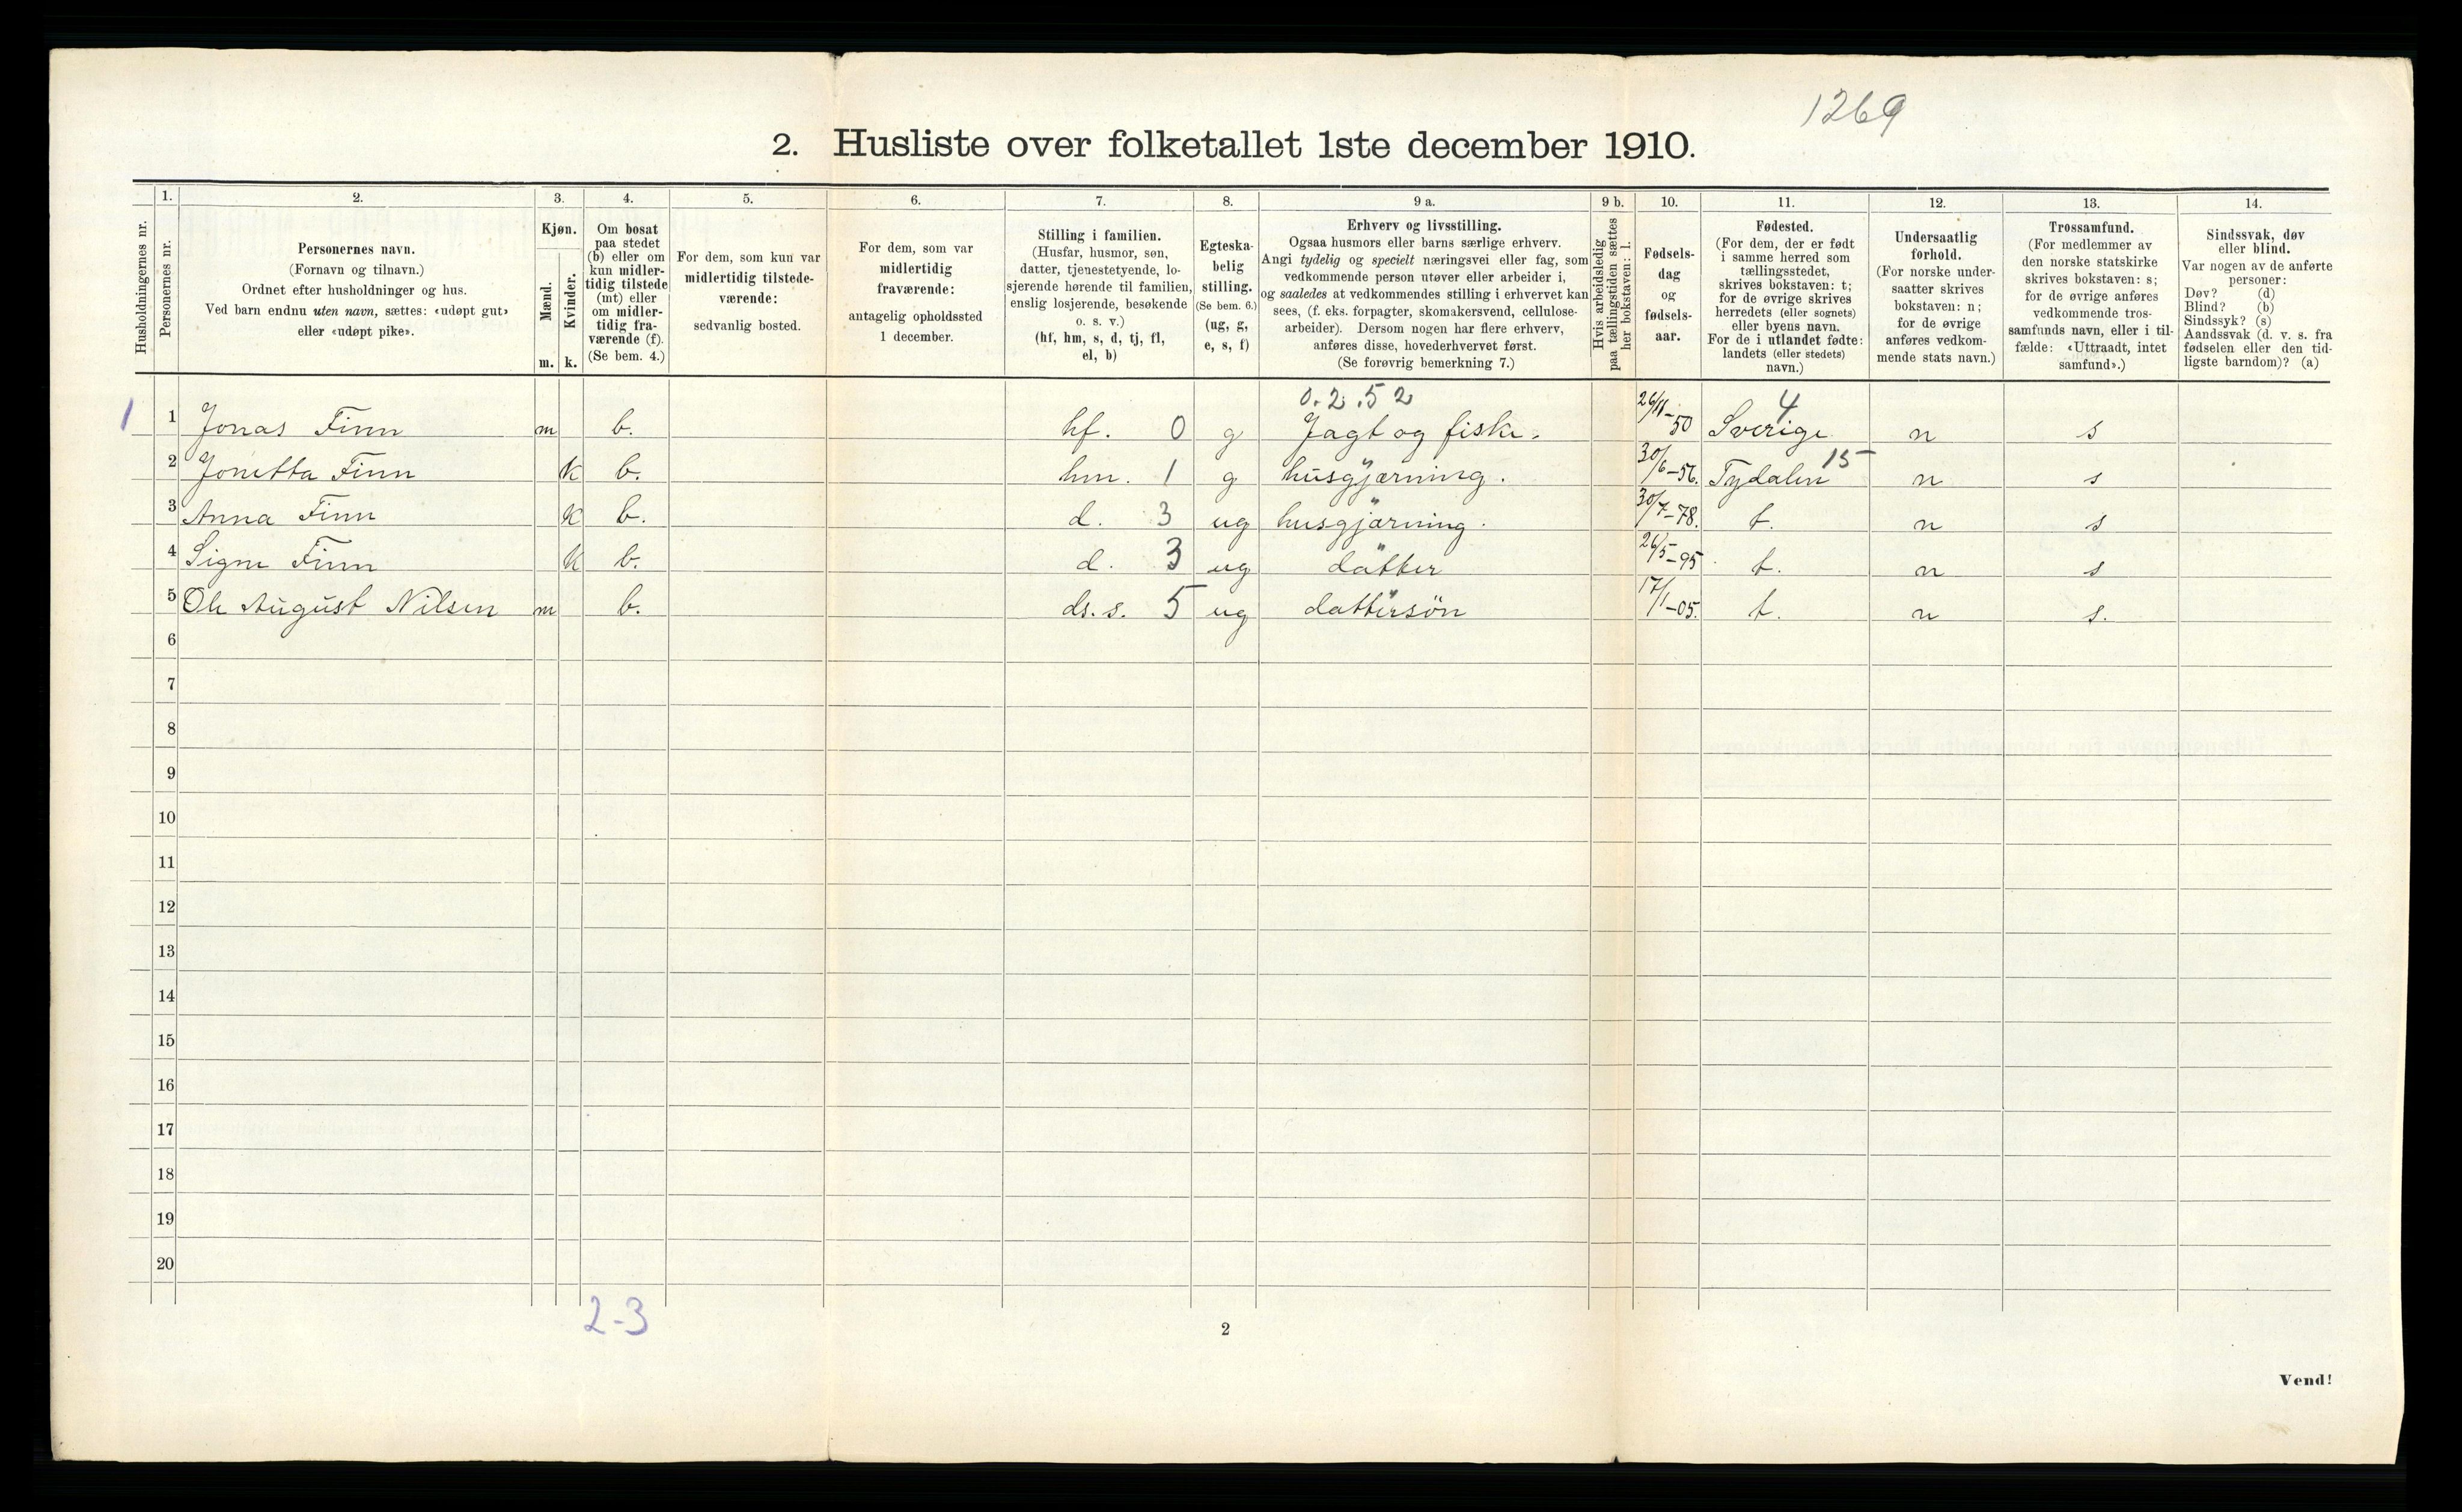 1269
2. Husliste over folketallet 1ste december 1910.
Husholdningernes nr.
1.
Personernes nr.
2.
Personernes navn.
(Fornavn og tilnavn.)
Ordnet efter husholdninger og hus.
Ved barn endnu uten navn, sættes: «udøpt gut»
eller «udøpt pike».
3.
Kjøn.
Mænd.
m.
Kvinder.
k.
4.
Om bosat
paa stedet
(b) eller om
kun midler-
tidig tilstede
(mt) eller
om midler-
tidig fra-
værende (f).
(Se bem. 4.)
5.
For dem, som kun var
midlertidig tilstede-
værende:
sedvanlig bosted.
6.
For dem, som var
midlertidig
fraværende:
antagelig opholdssted
1 december.
7.
Stilling i familien.
(Husfar, husmor, søn,
datter, tjenestetyende, lo-
sjerende hørende til familien,
enslig losjerende, besøkende
o. s. v.)
(hf, hm, s, d, tj, fl,
el, b)
8.
Egteska-
belig
stilling.
(Se bem. 6.)
(ug, g,
e, s, f)
9 a.
Erhverv og livsstilling.
Ogsaa husmors eller barns særlige erhverv.
Angi tydelig og specielt næringsvei eller fag, som
vedkommende person utøver eller arbeider i,
og saaledes at vedkommendes stilling i erhvervet kan
sees, (f. eks. forpagter, skomakersvend, cellulose-
arbeider). Dersom nogen har flere erhverv,
anføres disse, hovederhvervet først.
(Se forøvrig bemerkning 7.)
9 b.
Hvis arbeidsledig
paa tællingstiden sættes
her bokstaven: l.
10.
Fødsels-
dag
og
fødsels-
aar.
11.
Fødested.
(For dem, der er født
i samme herred som
tællingsstedet,
skrives bokstaven: t;
for de øvrige skrives
herredets (eller sognets)
eller byens navn.
For de i utlandet fødte:
landets (eller stedets)
navn.)
12.
Undersaatlig
forhold.
(For norske under-
saatter skrives
bokstaven: n;
for de øvrige
anføres vedkom-
mende stats navn.)
13.
Trossamfund.
(For medlemmer av
den norske statskirke
skrives bokstaven: s;
for de øvrige anføres
vedkommende tros-
samfunds navn, eller i til-
fælde: «Uttraadt, intet
samfund».)
14.
Sindssvak, døv
eller blind.
Var nogen av de anførte
personer:
Døv? (d)
Blind? (b)
Sindssyk? (s)
Aandssvak (d. v. s. fra
fødselen eller den tid-
ligste barndom)? (a)
0.2.52 4
1 1 Jonas Finn m b. hf. 0 g Jagt og fiske. 26/11-50 Sverige n s
2 Jonetta Finn k b. hm. 1 g husgjærning. 30/6-56. Tydalen 15 n s
3 Anna Finn k b. d. 3 ug husgjærning. 30/7-78. t. n s
4 Signe Finn k b. d. 3 ug datter 26/5-95 t. n s
5 Ole August Nilsen m b. ds. s. 5 ug dattersön 17/1-05. t. n s.
6
7
8
9
10
11
12
13
14
15
16
17
18
19
20
2-3
2
Vend!